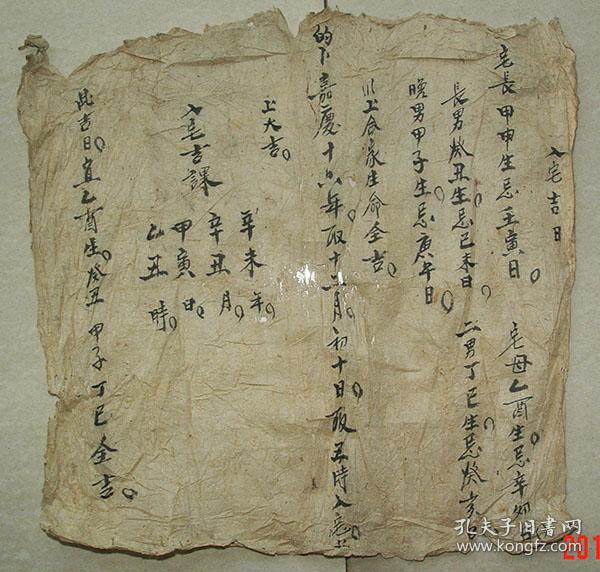 入宅吉日
宅長甲申生忌壬寅日。 宅母乙酉生忌辛卯日
長男癸丑生忌己未日 二男丁巳生忌癸亥日
晚男甲子生忌庚午日。
以上合家生命全吉。
的下嘉慶十六年取十二月初十日取丑時入宅上
上大吉。
入宅吉課
辛未年。
辛丑月。
甲寅日。
乙丑時。
此吉日。宜乙酉生。癸丑甲子丁巳全吉。
孔夫子旧書网
www.kongfz.com
201